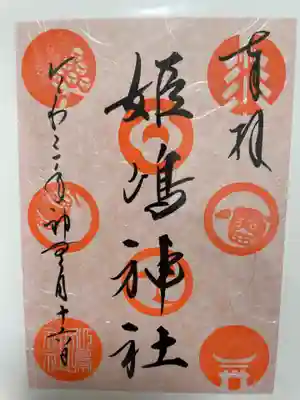 奉拝
姫嶋神社
令和三年神無月十六日